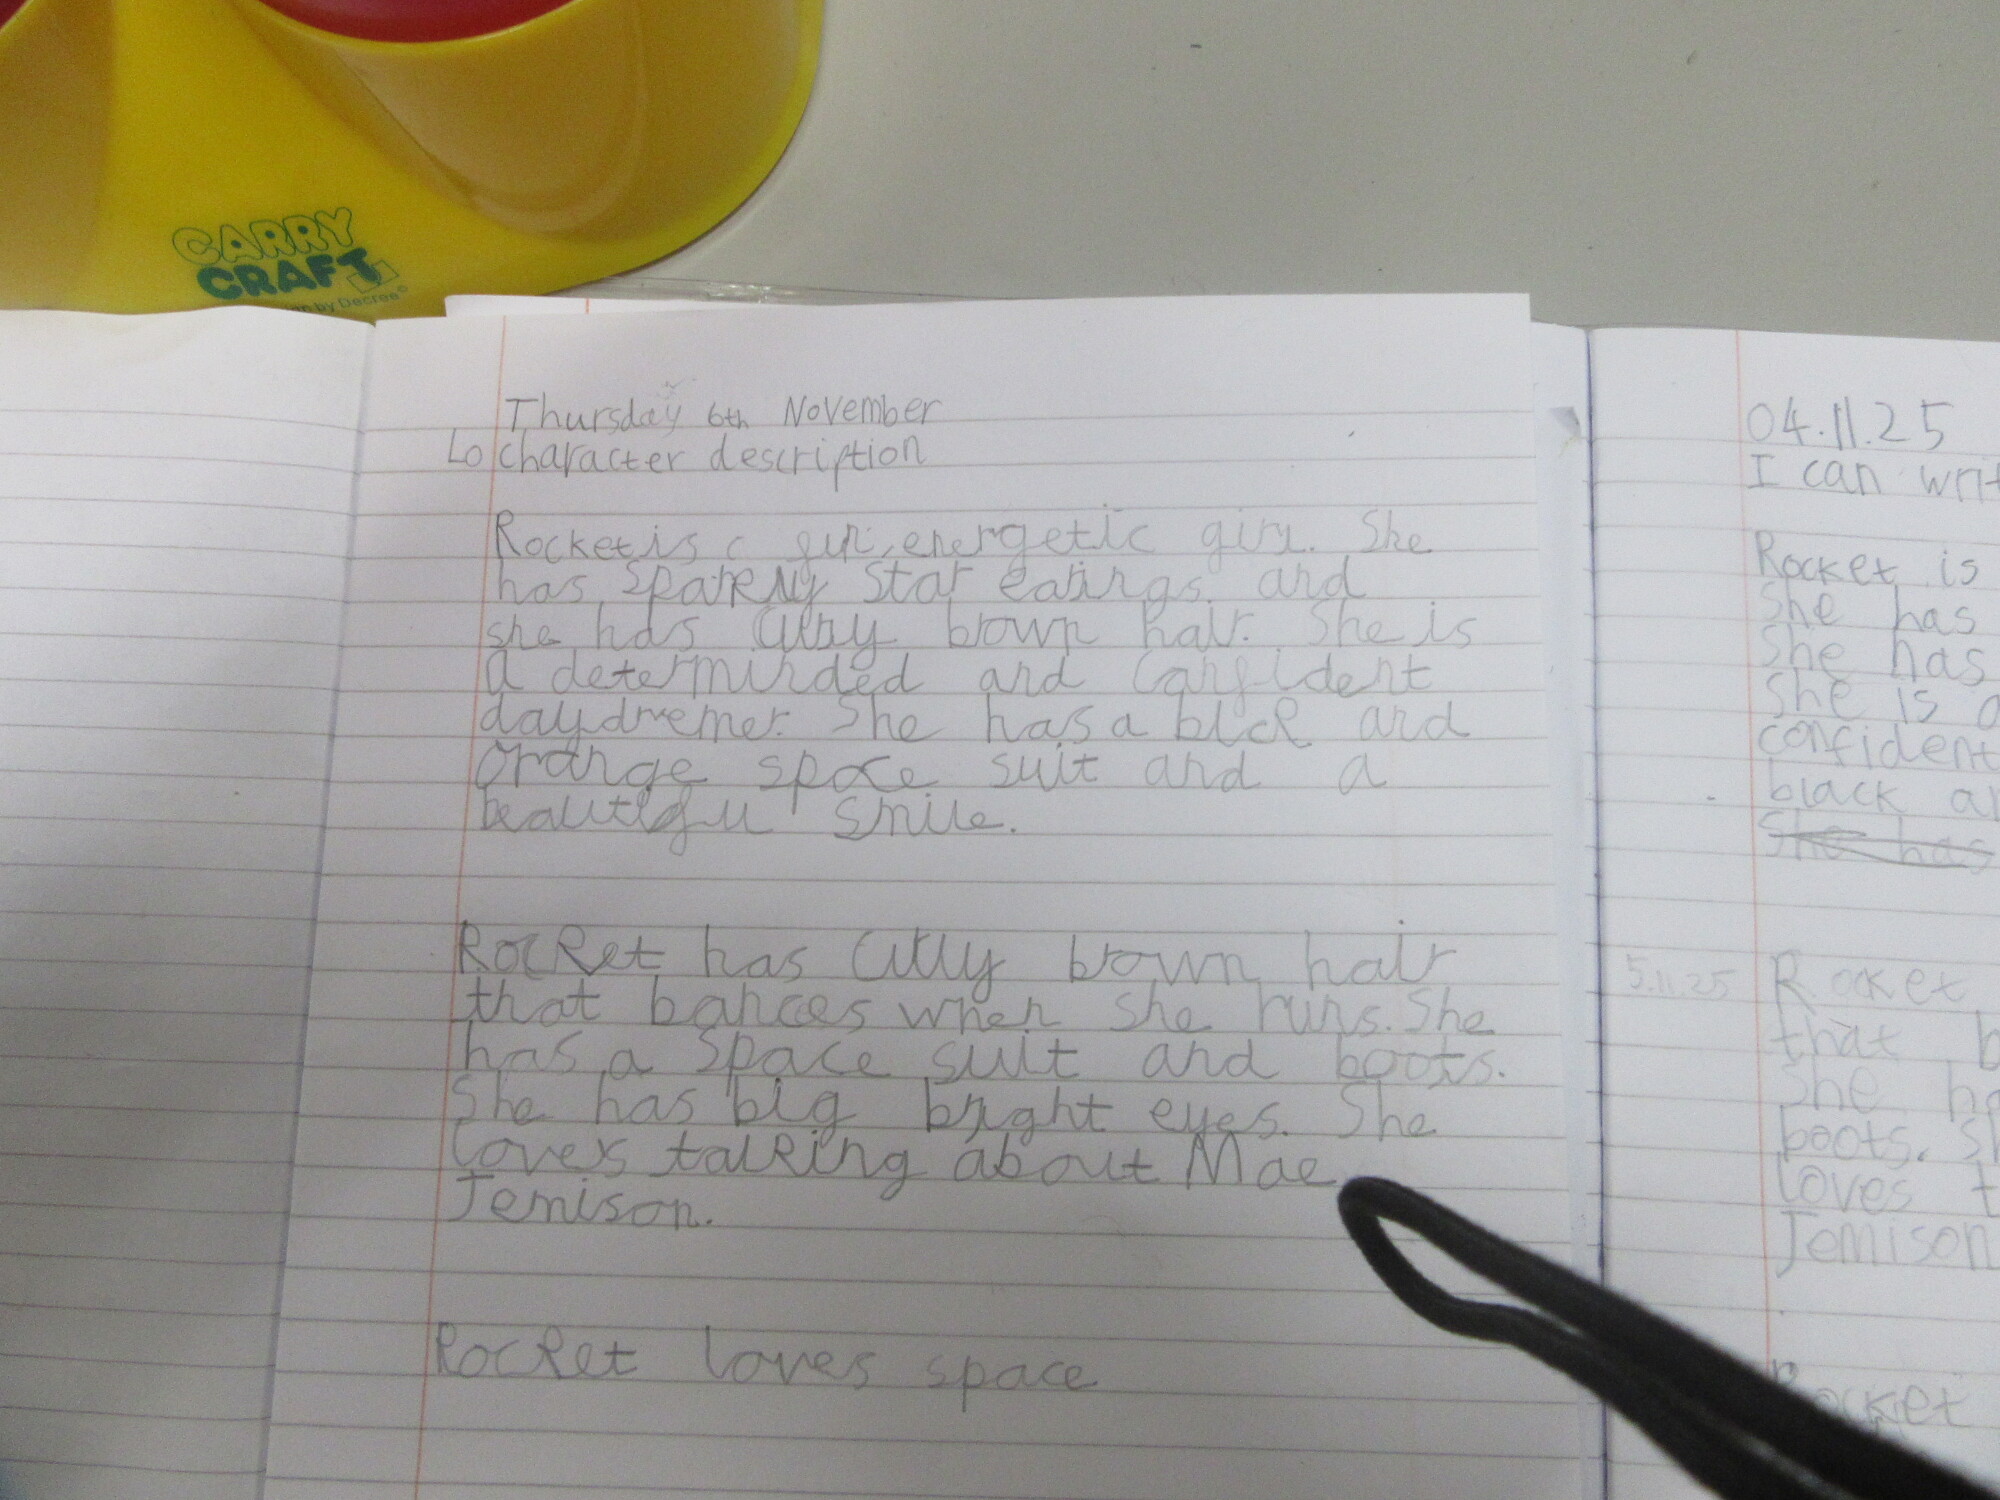 CARRY
CRAFT
by Decree
Thursday 6th November
Lo character description
Rocket is energetic girl. She
has Sparkly Star earings and
she has curly brown hair. She is
a determinded and confident
daydremer. She has a black and
orange space suit and a
beautiful smile.
Rocket has curly brown hair
that bances when she runs. She
has a space suit and boots.
She has big bright eyes. She
loves talking about Mae
Jemison.
Rocket loves space
04.11.25
I can
Rocket is
She has
She has
She is
confident
black
She has
5.11.25 Rocket
that
She
boots.
loves
Jemison
Rocket